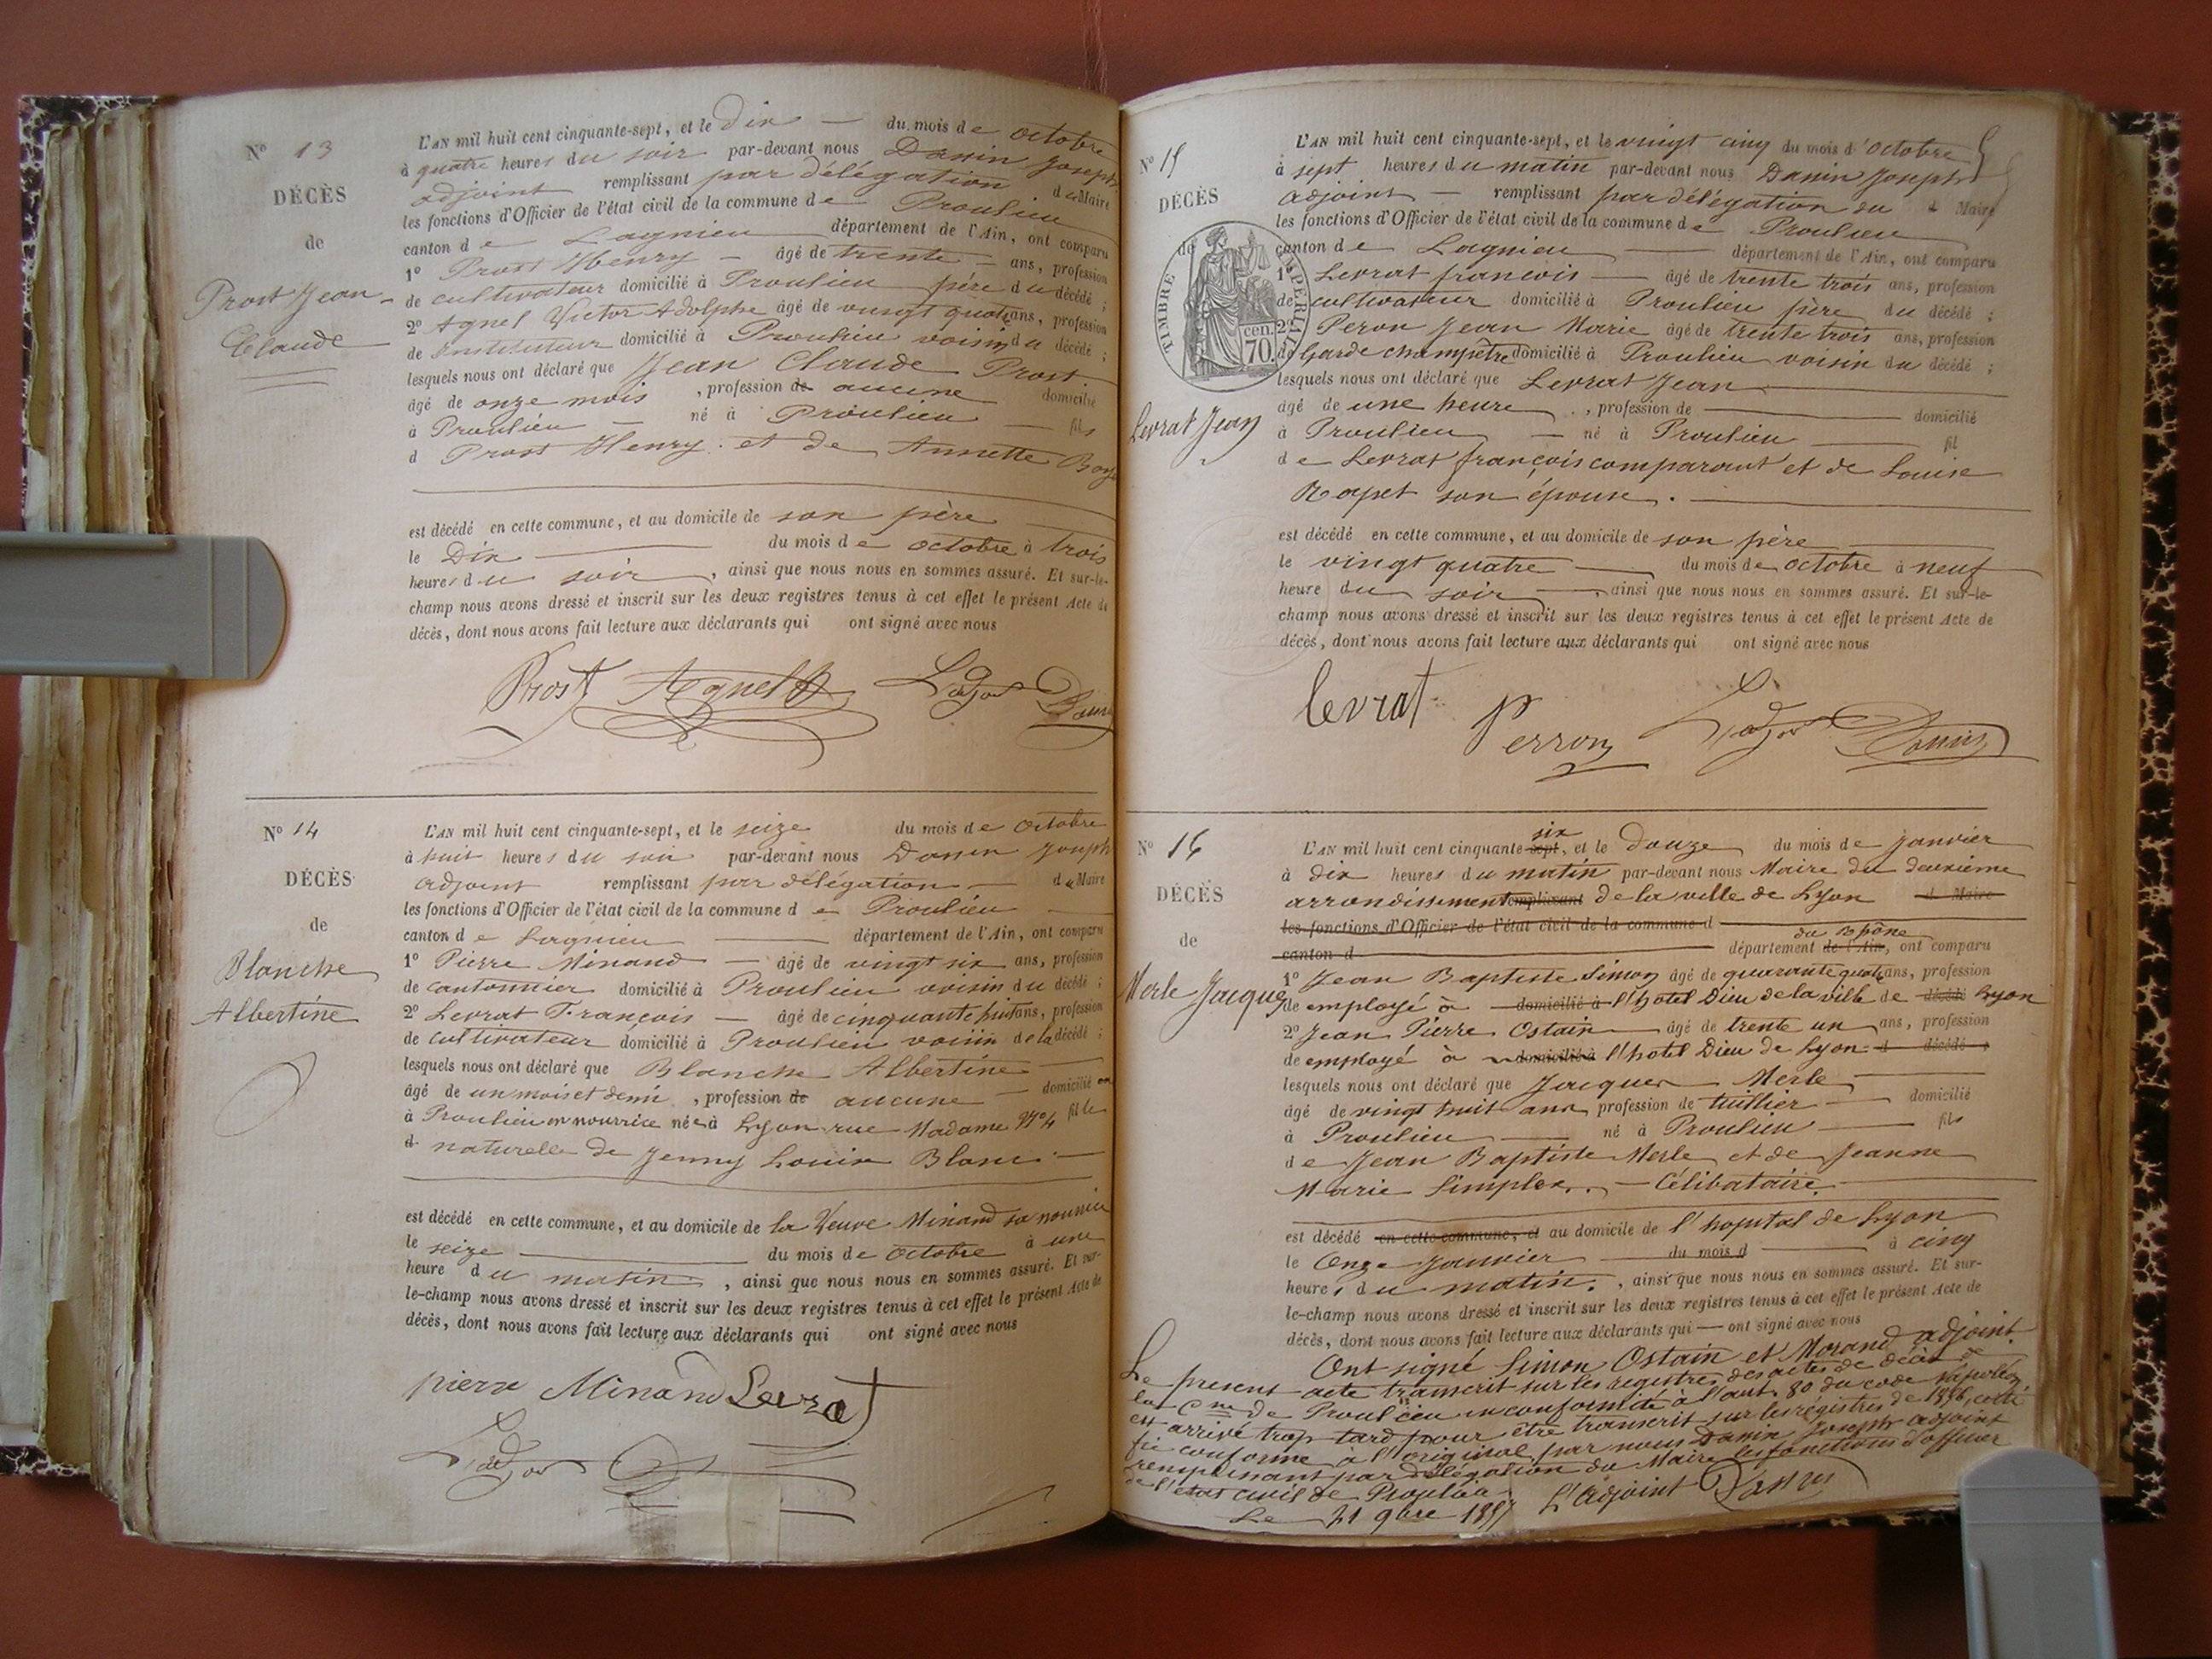 N° 13
DÉCÈS
de
Prost Jean
Claude
L'AN mil huit cent cinquante-sept, et le dix du mois de octobre
à quatre heures du soir par-devant nous Danin Joseph
adjoint remplissant par délégation du Maire
les fonctions d'Officier de l'état civil de la commune de Proulieu
canton de Lagnieu département de l'Ain, ont comparu
1° Prost Henry âgé de trente ans, profession
de cultivateur domicilié à Proulieu père du décédé ;
2° Agnel Victor Adolphe âgé de vingt quatre ans, profession
de Instituteur domicilié à Proulieu voisin du décédé ;
lesquels nous ont déclaré que Jean Claude Prost
âgé de onze mois , profession de aucune domicilié
à Proulieu né à Proulieu fils
d Prost Henry et de Annette
est décédé en cette commune, et au domicile de son père
le Dix du mois de octobre à trois
heures du soir , ainsi que nous nous en sommes assuré. Et sur-le-
champ nous avons dressé et inscrit sur les deux registres tenus à cet effet le présent Acte de
décès, dont nous avons fait lecture aux déclarants qui ont signé avec nous
Prost Agnel L'adjoint Danin
N° 14
DÉCÈS
de
Blanche
Albertine
L'AN mil huit cent cinquante-sept, et le seize du mois de octobre
à huit heures du soir par-devant nous Danin Joseph
adjoint remplissant par délégation du Maire
les fonctions d'Officier de l'état civil de la commune de Proulieu
canton de Lagnieu département de l'Ain, ont comparu
1° Pierre Minand âgé de vingt six ans, profession
de cantonnier domicilié à Proulieu voisin du décédé ;
2° Levrat François âgé de cinquante huit ans, profession
de cultivateur domicilié à Proulieu voisin de la décédé ;
lesquels nous ont déclaré que Blanche Albertine
âgé de un mois et demi , profession de aucune domicilié en
à Proulieu en nourrice née à Lyon rue Madame N° 4 fille
d naturelle de Jenny Louise Blanc
est décédé en cette commune, et au domicile de la Veuve Minand sa nourrice
le seize du mois de octobre à une
heure du matin , ainsi que nous nous en sommes assuré. Et sur-
le-champ nous avons dressé et inscrit sur les deux registres tenus à cet effet le présent Acte de
décès, dont nous avons fait lecture aux déclarants qui ont signé avec nous
pierre Minand Levrat
L'adjoint
N° 15
DÉCÈS
de
TIMBRE IMPÉRIAL
70 cen.
Levrat Jean
L'AN mil huit cent cinquante-sept, et le vingt cinq du mois d'octobre
à sept heures du matin par-devant nous Danin Joseph
adjoint remplissant par délégation du d Maire
les fonctions d'Officier de l'état civil de la commune de Proulieu
canton de Lagnieu département de l'Ain, ont comparu
1° Levrat françois âgé de trente trois ans, profession
de cultivateur domicilié à Proulieu père du décédé ;
2° Peron Jean Marie âgé de trente trois ans, profession
de Garde champêtre domicilié à Proulieu voisin du décédé ;
lesquels nous ont déclaré que Levrat Jean
âgé de une heure , profession de domicilié
à Proulieu né à Proulieu fil
de Levrat françois comparant et de Louise
Rapet son épouse.
est décédé en cette commune, et au domicile de son père
le vingt quatre du mois de octobre à neuf
heure du soir , ainsi que nous nous en sommes assuré. Et sur-le-
champ nous avons dressé et inscrit sur les deux registres tenus à cet effet le présent Acte de
décès, dont nous avons fait lecture aux déclarants qui ont signé avec nous
levrat Perron L'adjoint Danin
N° 16
DÉCÈS
de
Merle Jacques
six
L'AN mil huit cent cinquante-sept, et le Douze du mois de Janvier
à dix heures du matin par-devant nous Maire du deuxième
arrondissement remplissant de la ville de Lyon d Maire
les fonctions d'Officier de l'état civil de la commune d
du Rhône
canton d département de l'Ain, ont comparu
1° Jean Baptiste Simon âgé de quarante quatre ans, profession
de employé à domicilié à l'hotel Dieu de la ville de décédé Lyon
2° Jean Pierre Ostain âgé de trente un ans, profession
de employé à domicilié à l'hotel Dieu de Lyon d décédé ;
lesquels nous ont déclaré que Jacques Merle
âgé de vingt huit ans profession de tuillier domicilié
à Proulieu né à Proulieu fils
de Jean Baptiste Merle et de Jeanne
Marie Simplex. Célibataire
est décédé en cette commune, et au domicile de l'hopital de Lyon
le Onze Janvier du mois d à cinq
heures du matin , ainsi que nous nous en sommes assuré. Et sur-
le-champ nous avons dressé et inscrit sur les deux registres tenus à cet effet le présent Acte de
décès, dont nous avons fait lecture aux déclarants qui ont signé avec nous
Ont signé Simon Ostain et Morand adjoint.
Le present acte transcrit sur les registres des actes de décès de
la Cne de Proulieu en conformité à l'art. 80 du code napoléon
est arrivé trop tard pour être transcrit sur les régistres de 1856, certi
fié conforme à l'original par nous Danin Joseph adjoint
remplissant par délégation du Maire les fonctions d'officier
de l'état civil de Proulieu
Le 21 9bre 1857 L'adjoint Danin